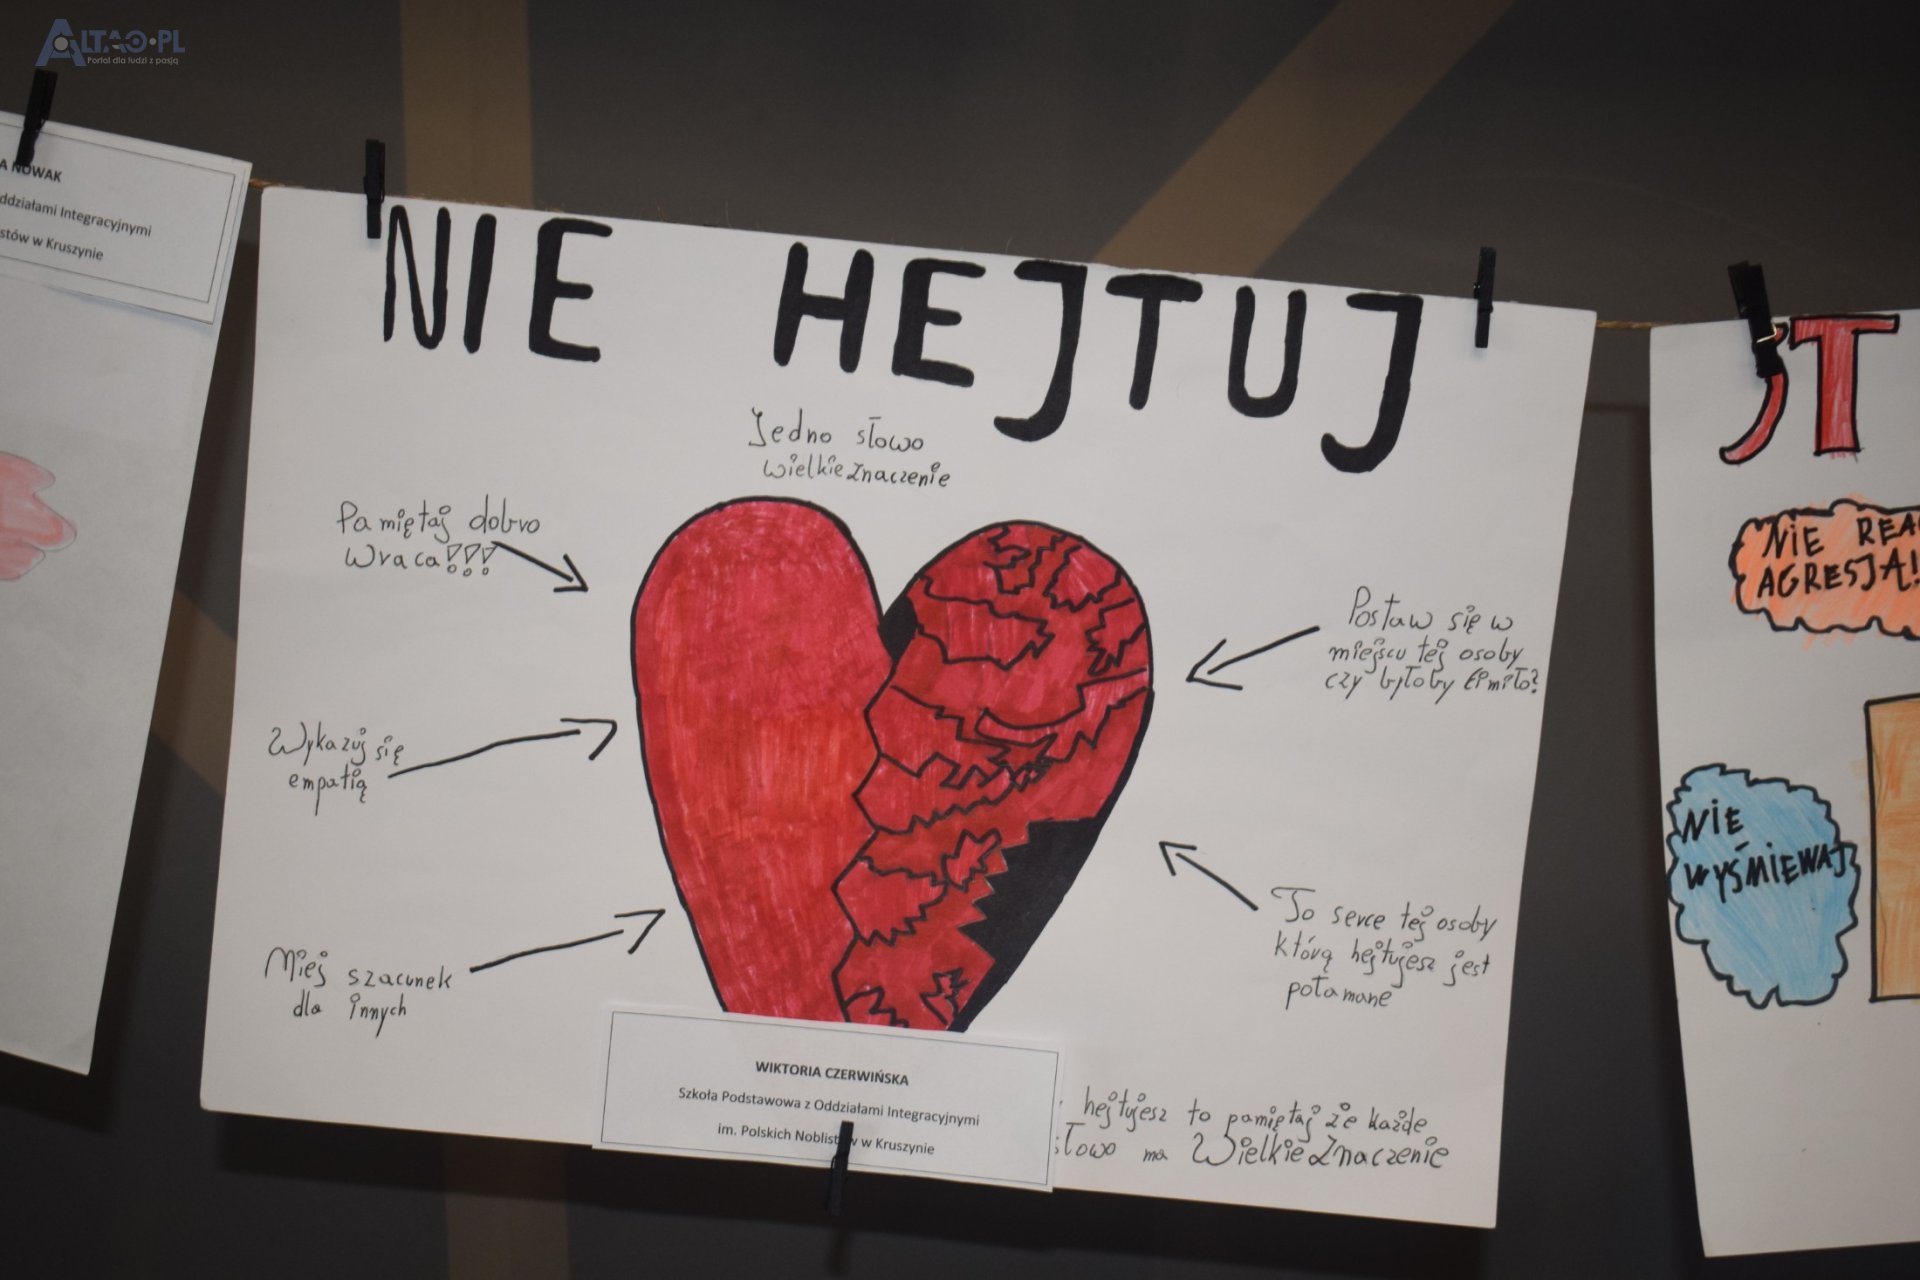 ALTAO.PL
Portal dla ludzi z pasją
A NOWAK
ddziałami Integracyjnymi
stów w Kruszynie
NIE HEJTUJ
Jedno słowo
wielkie znaczenie
Pamiętaj dobro
wraca!!!
Wykazuj się
empatią
Miej szacunek
dla innych
Postaw się w
miejscu tej osoby
czy byłoby Ci miło?
To serce tej osoby
którą hejtujesz jest
połamane
WIKTORIA CZERWIŃSKA
Szkoła Podstawowa z Oddziałami Integracyjnymi
im. Polskich Noblistów w Kruszynie
hejtujesz to pamiętaj że każde
słowo ma Wielkie Znaczenie
ST
NIE REA
AGRESJĄ!
NIE
WYŚMIEWAJ